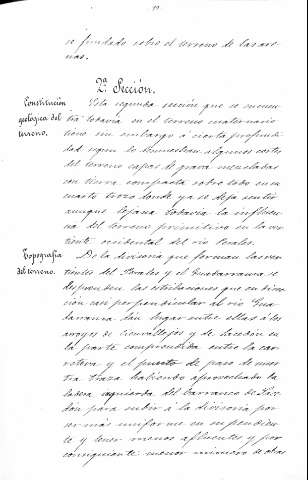 se fundado sobre el terreno de las are-
nas.
2ª Sección.
Constitución
geológica del
terreno.
Esta segunda sección que se encuen-
tra todavia en el terreno cuaternario
tiene sin embargo á cierta profundi-
dad segun lo demuestran algunos cortes
del terreno capas de grava mezcladas
con tierra compacta sobre todo en su
cuarto trozo donde ya se deja sentir
aunque lejana todavia la influen-
cia del terreno primitivo en la ver-
tiente occidental del rio Perales.
Topografía
del terreno.
De la divisoria que forman las ver-
tientes del Perales y el Guadarrama se
desprenden las estribaciones que en direc-
ción casi perpendicular al rio Gua-
darrama dan lugar entre ellas á los
arroyos de y de Sacedón en
la parte comprendida entre la car-
retera y el puerto de paso de nues-
tra traza habiendo aprovechado la
ladera izquierda del barranco de
para subir á la divisoria por
ser más uniforme en su pendien-
te y tener menos afluentes y por
consiguiente menor número de obras